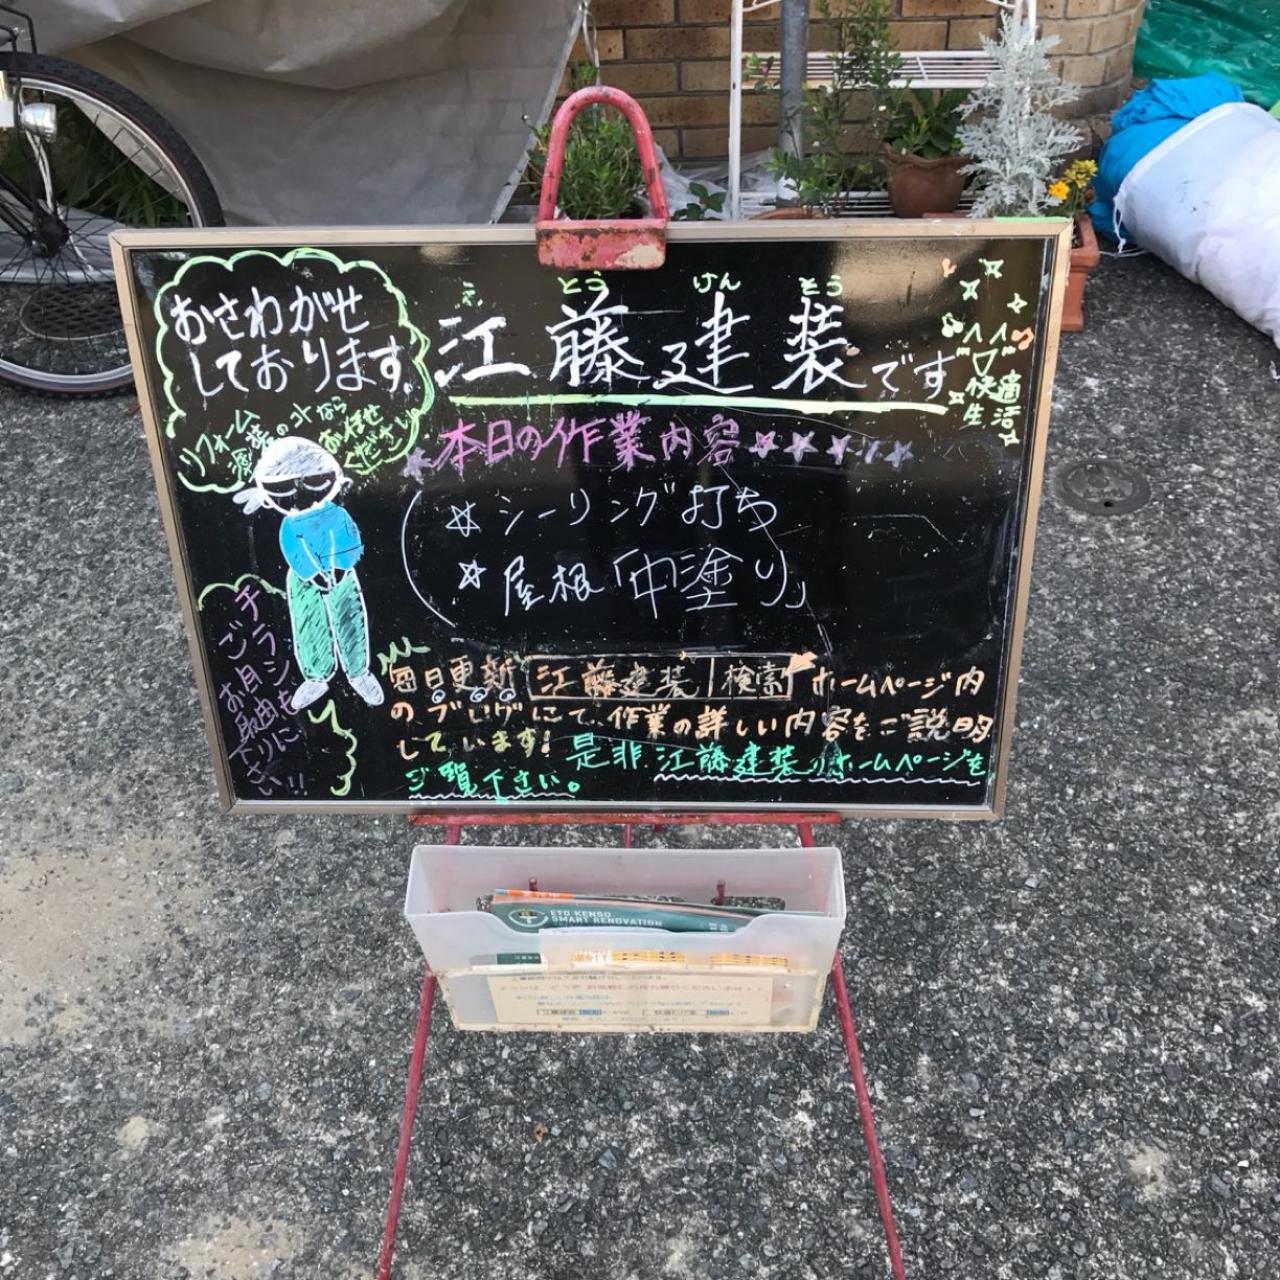 おさわがせ
しております。
リフォーム
塗装の事なら
お任せ
ください
え とう けん そう
江藤建装です
快適
生活
本日の作業内容
☆ シーリング打ち
☆ 屋根「中塗り」
チラシも
ご自由に
お取り
下さい!!
毎日更新 江藤建装 検索 ホームページ内
のブログにて、作業の詳しい内容をご説明
しています! 是非、江藤建装のホームページを
ご覧下さい。
ETO KENSO
SMART RENOVATION